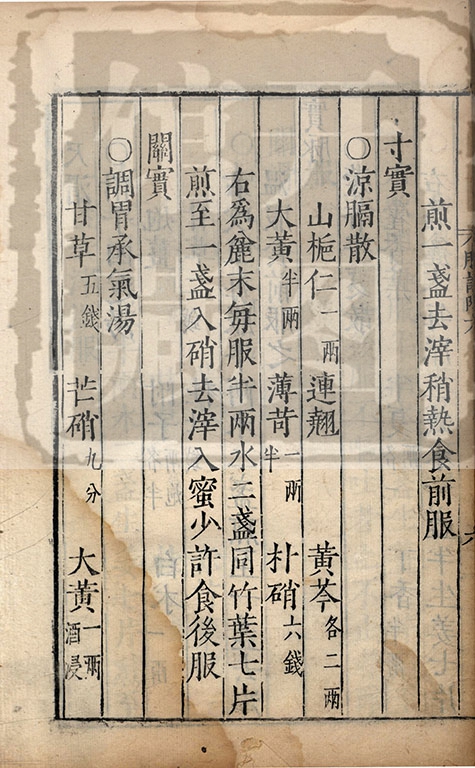 煎一盞去滓稍熱食前服
寸實
〇涼膈散
山梔仁一兩　連翹　黃芩各二兩
大黃半兩　薄苛一兩半　朴硝六錢
右為麁末每服半兩水二盞同竹葉七片
煎至一盞入硝去滓入蜜少許食後服
關實
〇調胃承氣湯
甘草五錢　芒硝九分　大黃一兩酒浸